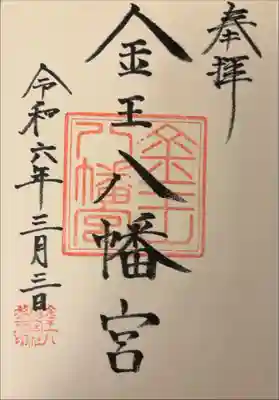 奉拝
金王八幡宮
金王
八幡宮
令和六年三月三日